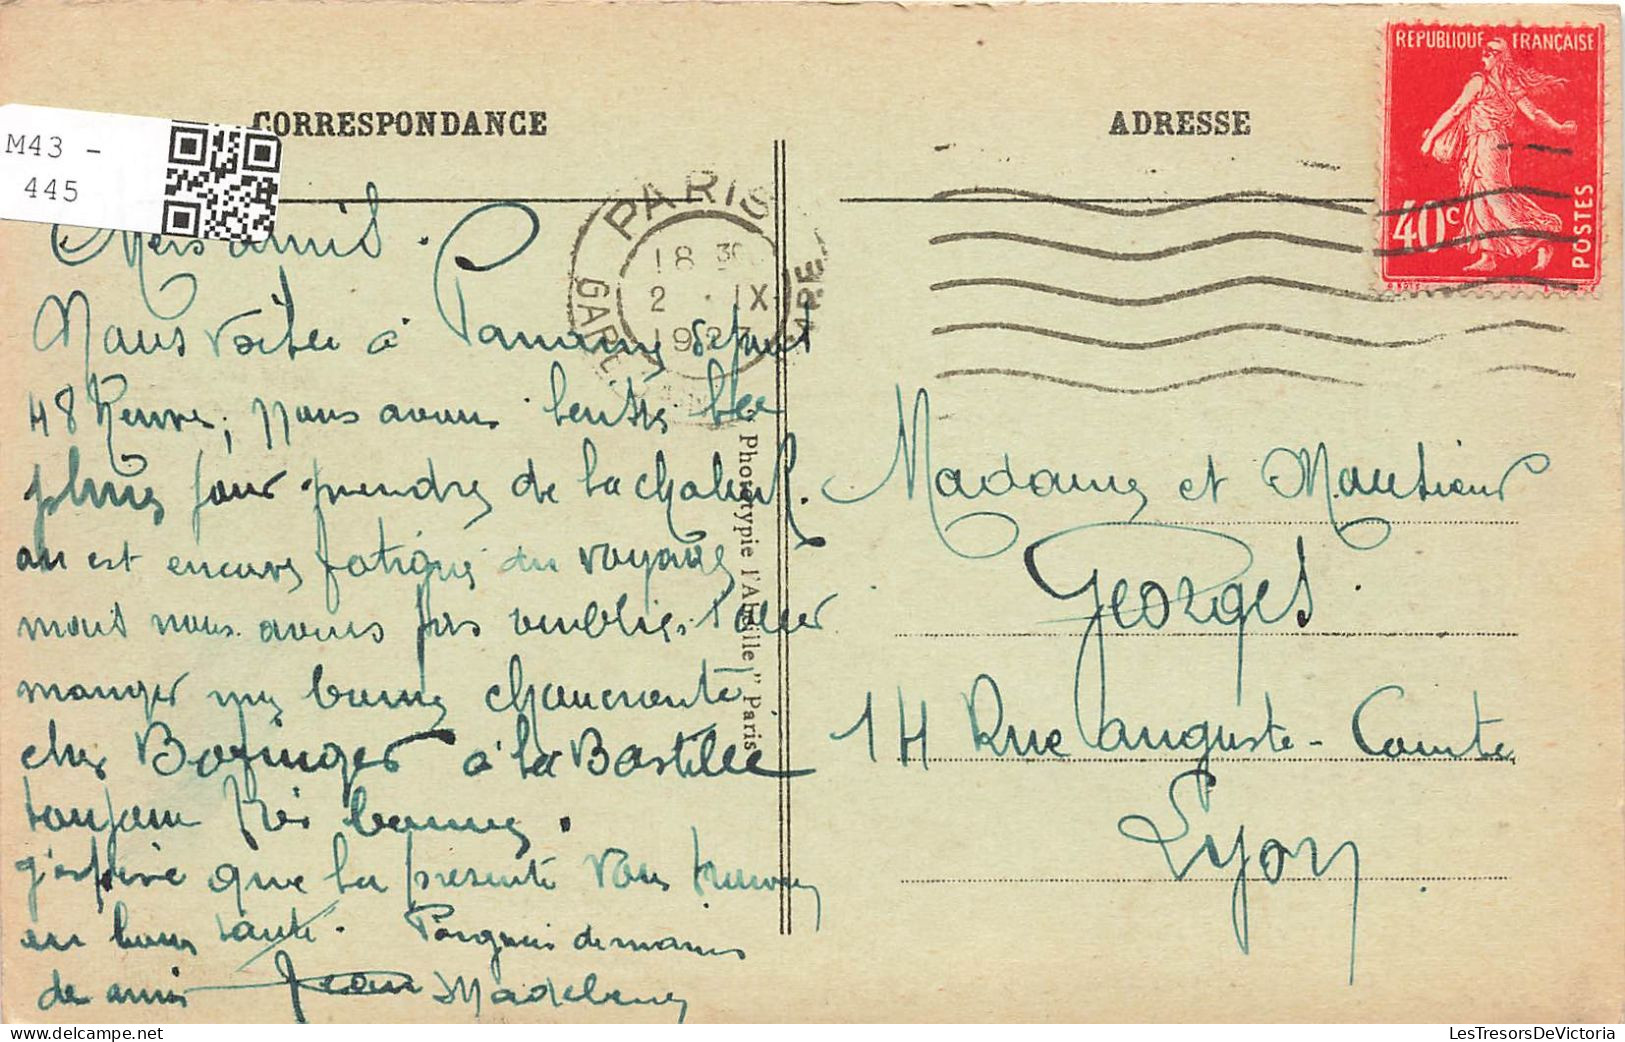 M43 -
445
CORRESPONDANCE
ADRESSE
REPUBLIQUE FRANÇAISE
40c
POSTES
PARIS
18 30
2 . IX
1927
GARE
Mers amis.
Nous à Paname depuis
48 heures, nous avons
plus pour prendre de la chaleur.
on est encores fatigués du voyage
mais nous avons pas oublies d'aller
manger une bonne choucroute
ches Bofinger à la Bastille
toujour très bonne.
J'espère que la présente vous trouve
en bons santé. Poignées de mains
de amis Jean Madeleine
Madame et Monsieur
Georges.
14 Rue Auguste-Comte
Lyon.
Phototypie l'Abeille " Paris
LesTresorsDeVictoria